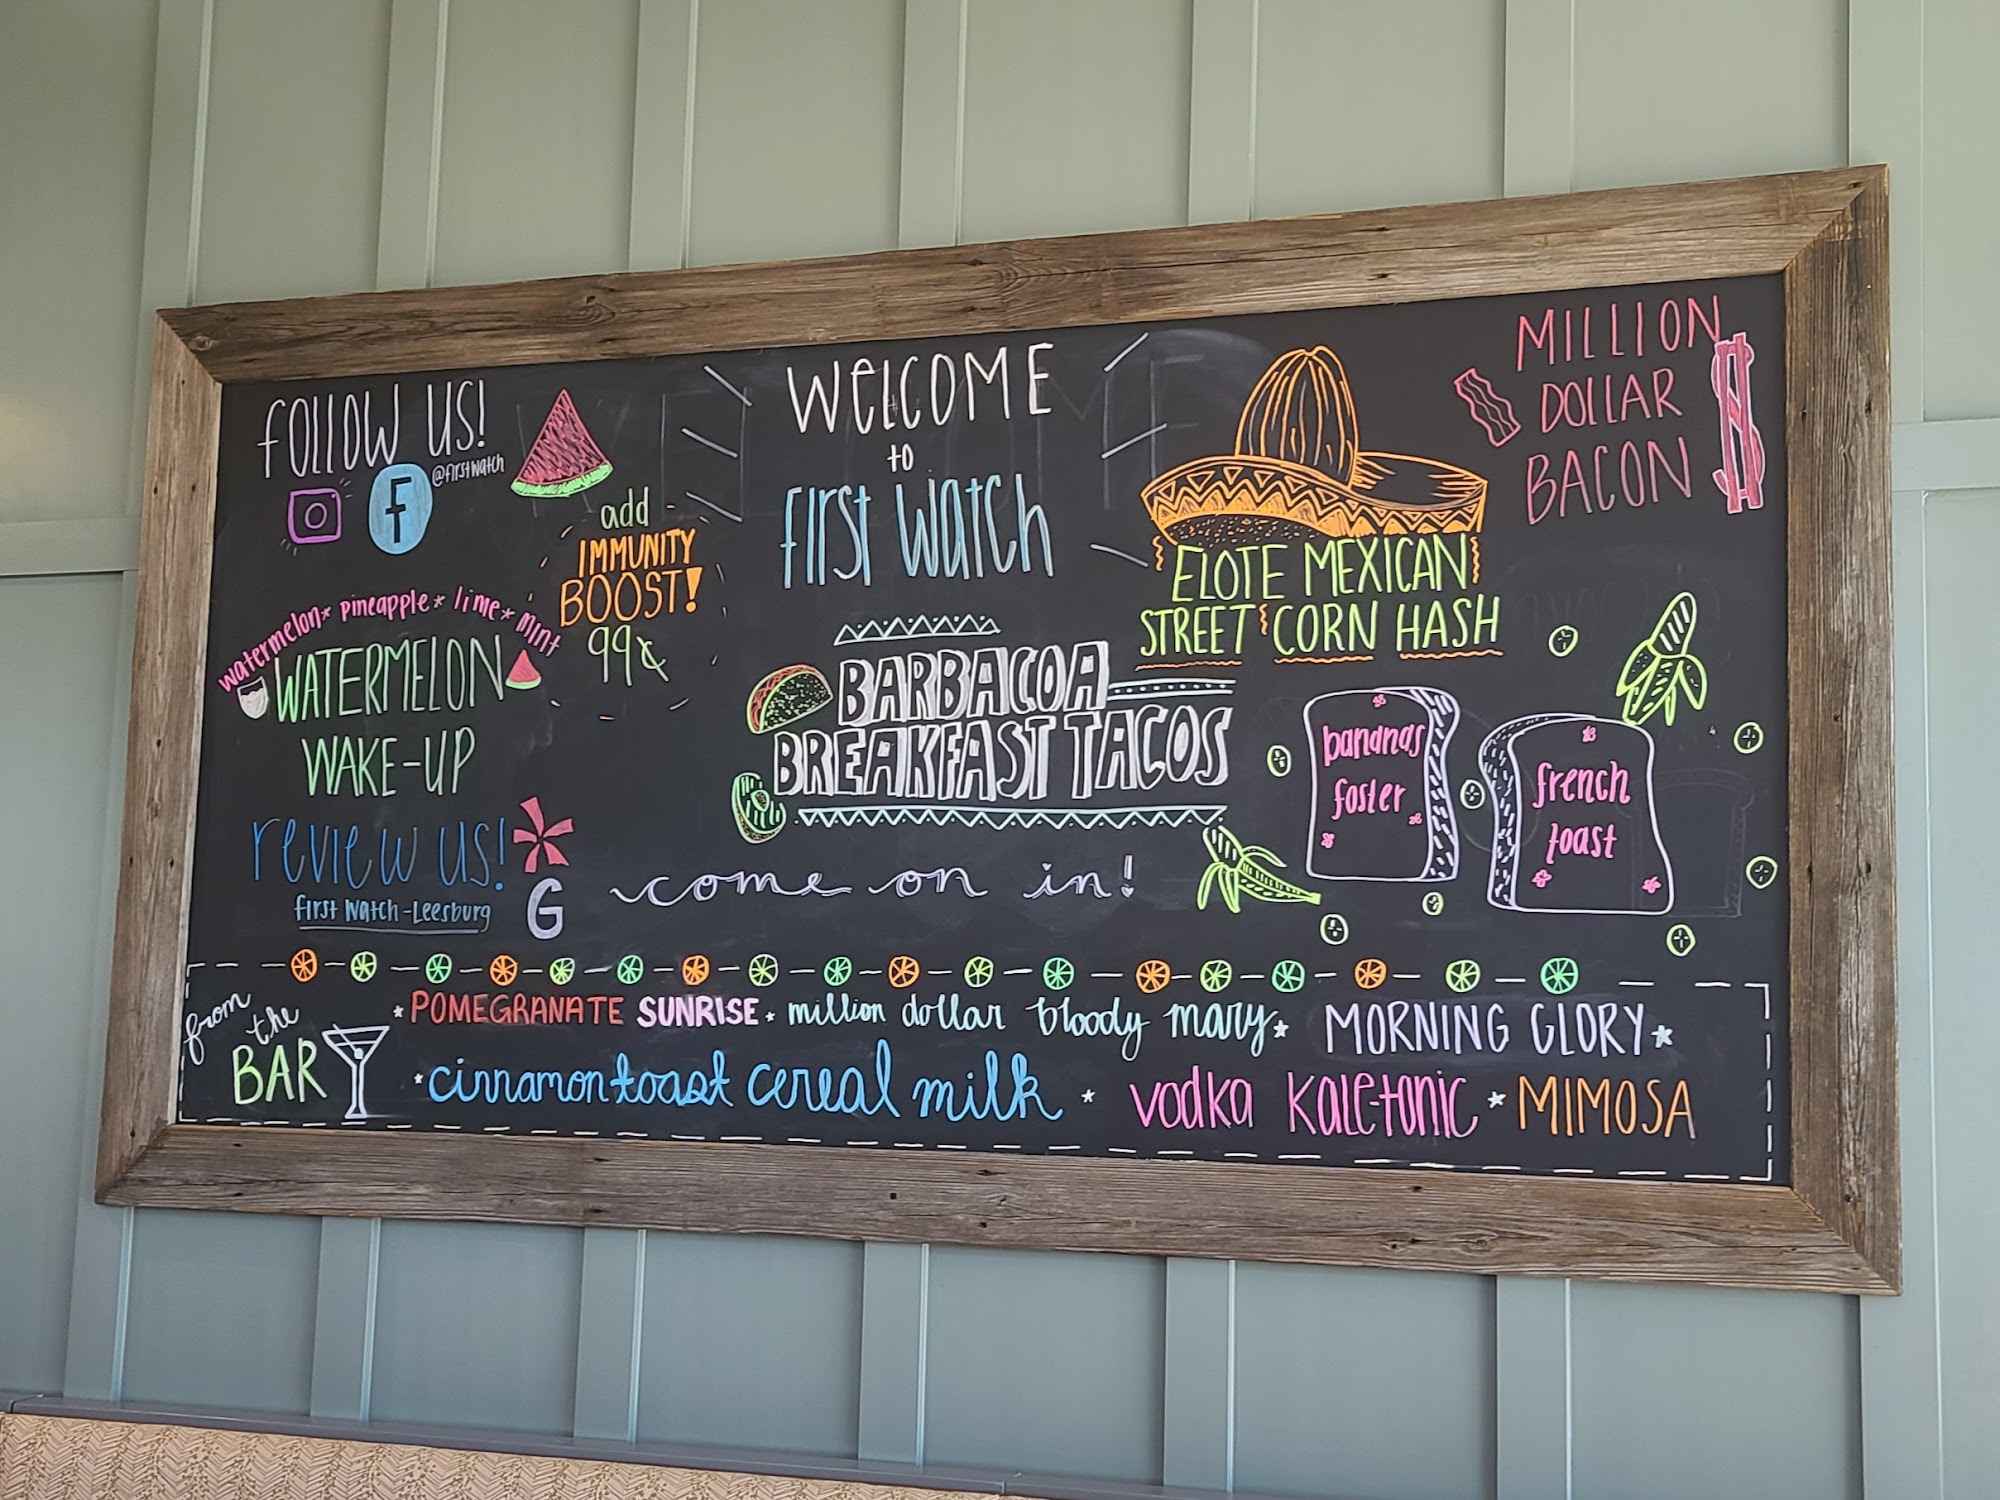 Follow us!
@firstwatch
F
add
IMMUNITY
BOOST!
99¢
watermelon* pineapple* lime* mint
WATERMELON
WAKE-UP
review us!
First Watch-Leesburg
G
WELCOME
to
First Watch
BARBACOA
BREAKFAST TACOS
come on in!
ELOTE MEXICAN
STREET CORN HASH
MILLION
DOLLAR
BACON
bananas
foster
french
toast
from
the
BAR
*POMEGRANATE SUNRISE* million dollar bloody mary* MORNING GLORY*
*cinnamon toast cereal milk * vodka kale-tonic * MIMOSA